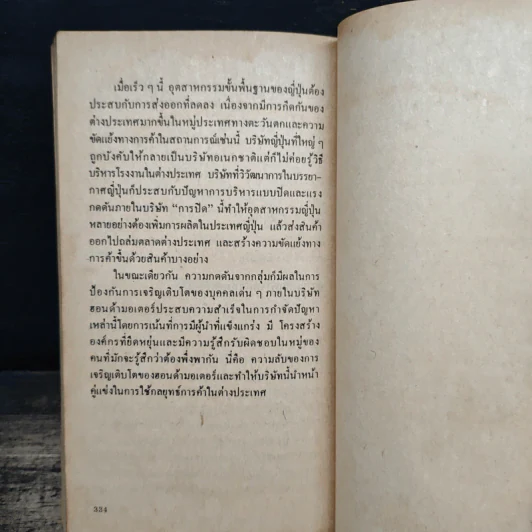 เมื่อเร็ว ๆ นี้ อุตสาหกรรมขั้นพื้นฐานของญี่ปุ่นต้อง
ประสบกับการส่งออกที่ลดลง เนื่องจากมีการกีดกันของ
ต่างประเทศมากขึ้นในหมู่ประเทศทางตะวันตกและความ
ขัดแย้งทางการค้าในสถานการณ์เช่นนี้ บริษัทญี่ปุ่นที่ใหญ่ ๆ
ถูกบังคับให้กลายเป็นบริษัทอเนกชาติแต่ก็ไม่ค่อยรู้วิธี
บริหารโรงงานในต่างประเทศ บริษัทที่วิวัฒนาการในบรรยา-
กาศญี่ปุ่นก็ประสบกับปัญหาการบริหารแบบปิดและแรง
กดดันภายในบริษัท “การปิด” นี้ทำให้อุตสาหกรรมญี่ปุ่น
หลายอย่างต้องเพิ่มการผลิตในประเทศญี่ปุ่น แล้วส่งสินค้า
ออกไปถล่มตลาดต่างประเทศ และสร้างความขัดแย้งทาง
การค้าขึ้นด้วยสินค้าบางอย่าง
ในขณะเดียวกัน ความกดดันจากกลุ่มก็มีผลในการ
ป้องกันการเจริญเติบโตของบุคคลเด่น ๆ ภายในบริษัท
ฮอนด้ามอเตอร์ประสบความสำเร็จในการกำจัดปัญหา
เหล่านี้โดยการเน้นที่การมีผู้นำที่แข็งแกร่ง มี โครงสร้าง
องค์กรที่ยืดหยุ่นและมีความรู้สึกรับผิดชอบในหมู่ของ
คนที่มักจะรู้สึกว่าต้องพึ่งพากัน นี่คือ ความลับของการ
เจริญเติบโตของฮอนด้ามอเตอร์และทำให้บริษัทนี้นำหน้า
คู่แข่งในการใช้กลยุทธ์การค้าในต่างประเทศ